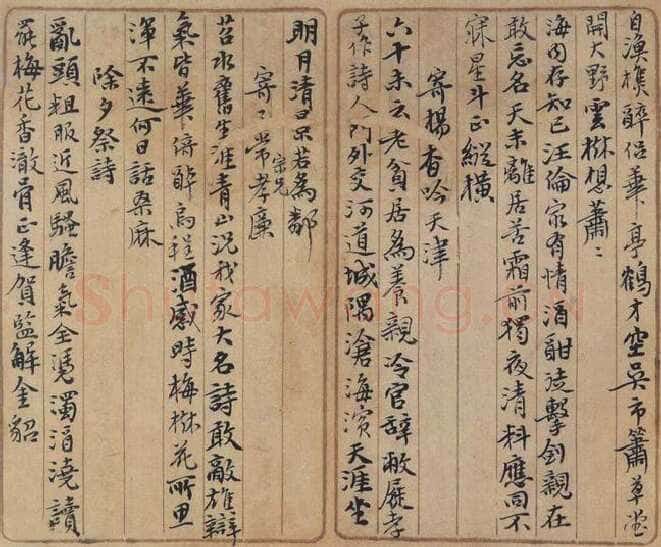 自渔樵醉侣華亭鶴才空吳市簫草堂
開大野雲樹想蕭〻
海内存知己汪倫最有情酒酣誰擊劍親在
敢忘名天末離居苦霜前獨夜清料應同不
寐星斗正縱橫
寄楊香吟天津
六十未云老貧居為養親冷官辭敝屣孝
子作詩人門外交河道城隅滄海濱天涯坐
明月清暑若為鄰
寄〻常宗兄孝廉
苕水舊生涯青山况我家大名詩敢敵雄辯
氣皆華倚醉烏程酒感時梅樹花所思
渾不遠何日話桑麻
除夕祭詩
亂頭粗服近風騷膽氣全憑濁酒澆讀
罷梅花香澈骨正逢賀監解金貂
Shuhuawang.cn